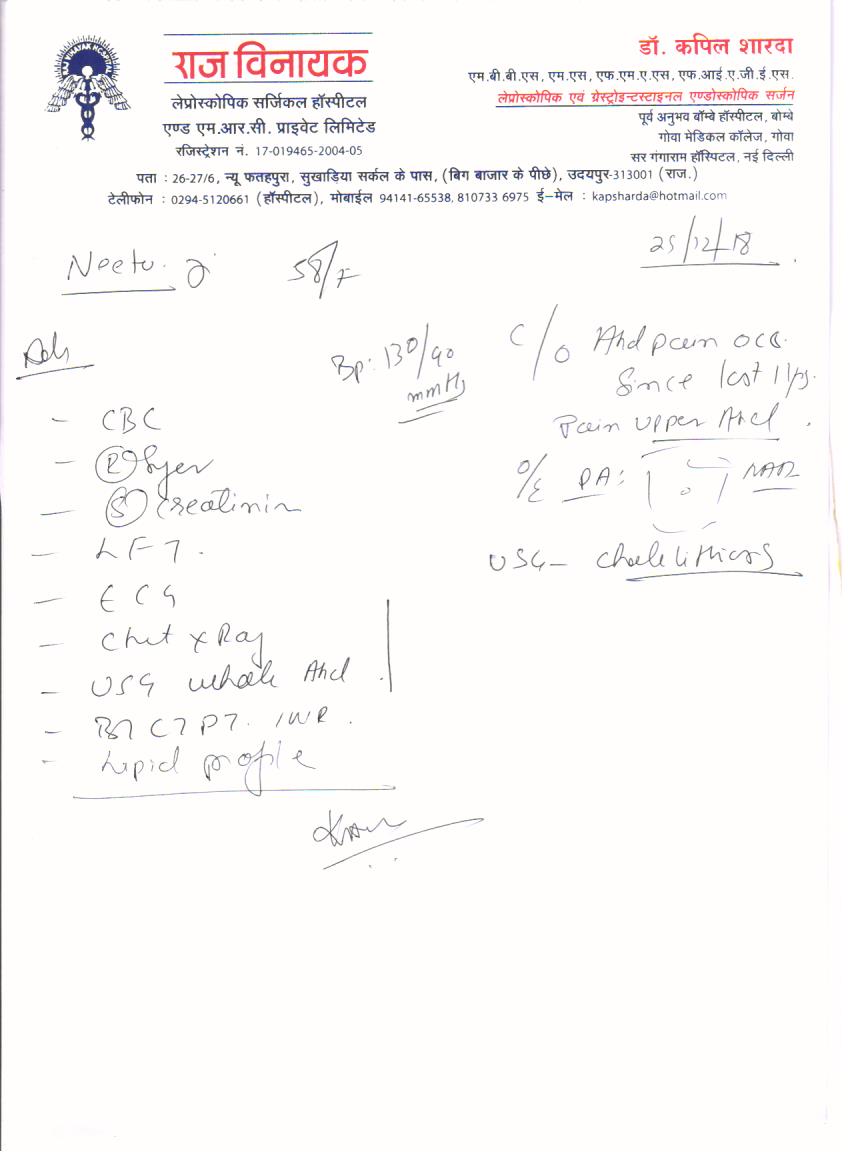 राज विनायक
लेप्रोस्कोपिक सर्जिकल हॉस्पीटल
एण्ड एम.आर.सी. प्राइवेट लिमिटेड
रजिस्ट्रेशन नं. 17-019465-2004-05
डॉ. कपिल शारदा
एम.बी.बी.एस, एम.एस, एफ.एम.ए.एस, एफ.आई.ए.जी.ई.एस.
लेप्रोस्कोपिक एवं ग्रेस्ट्रोइन्टस्टाइनल एण्डोस्कोपिक सर्जन
पूर्व अनुभव बॉम्बे हॉस्पीटल, बोम्बे
गोवा मेडिकल कॉलेज, गोवा
सर गंगाराम हॉस्पिटल, नई दिल्ली
पता : 26-27/6, न्यू फतहपुरा, सुखाड़िया सर्कल के पास, (बिग बाजार के पीछे), उदयपुर-313001 (राज.)
टेलीफोन : 0294-5120661 (हॉस्पीटल), मोबाईल 94141-65538, 810733 6975 ई-मेल : kapsharda@hotmail.com
25/12/18
Neetu. 58/F
Bp: 130/90
mmHg
C/O Abd pain occ.
Since last 1 yr.
Pain upper Abd.
O/E PA: NAD
USG - Cholelithiasis
Adv
- CBC
- (R) Sugar
- (S) Creatinin
- LFT.
- ECG
- Chest x Ray
- USG whole Abd.
- BT CT PT. INR.
- Lipid profile